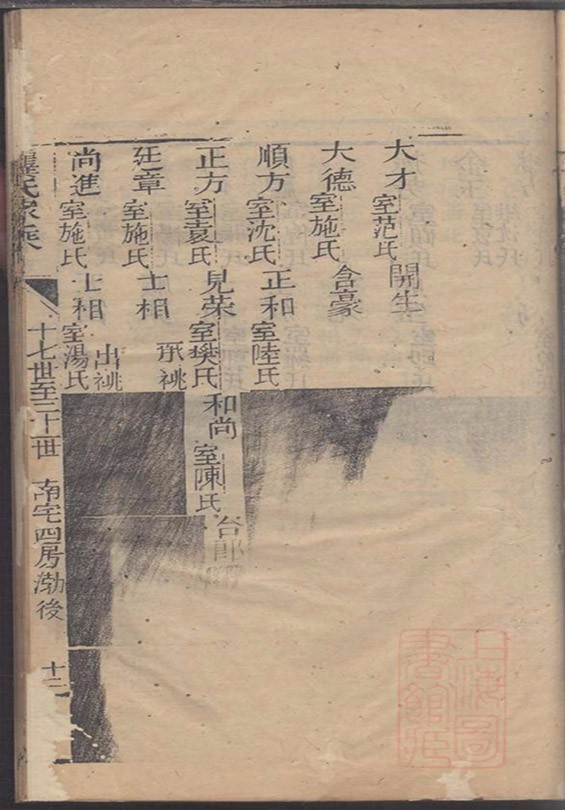 大才 室范氏 開生
大德 室施氏 含豪
順方 室沈氏 正和 室陸氏
正方 室袁氏 見荣 室樊氏 和尚 室陳氏 台郎
廷章 室施氏 士相 承祧
尚進 室施氏 士相 室湯氏 出祧
氏家乘 十七世至二十一世 南宅四房渤後
上海圖書館藏